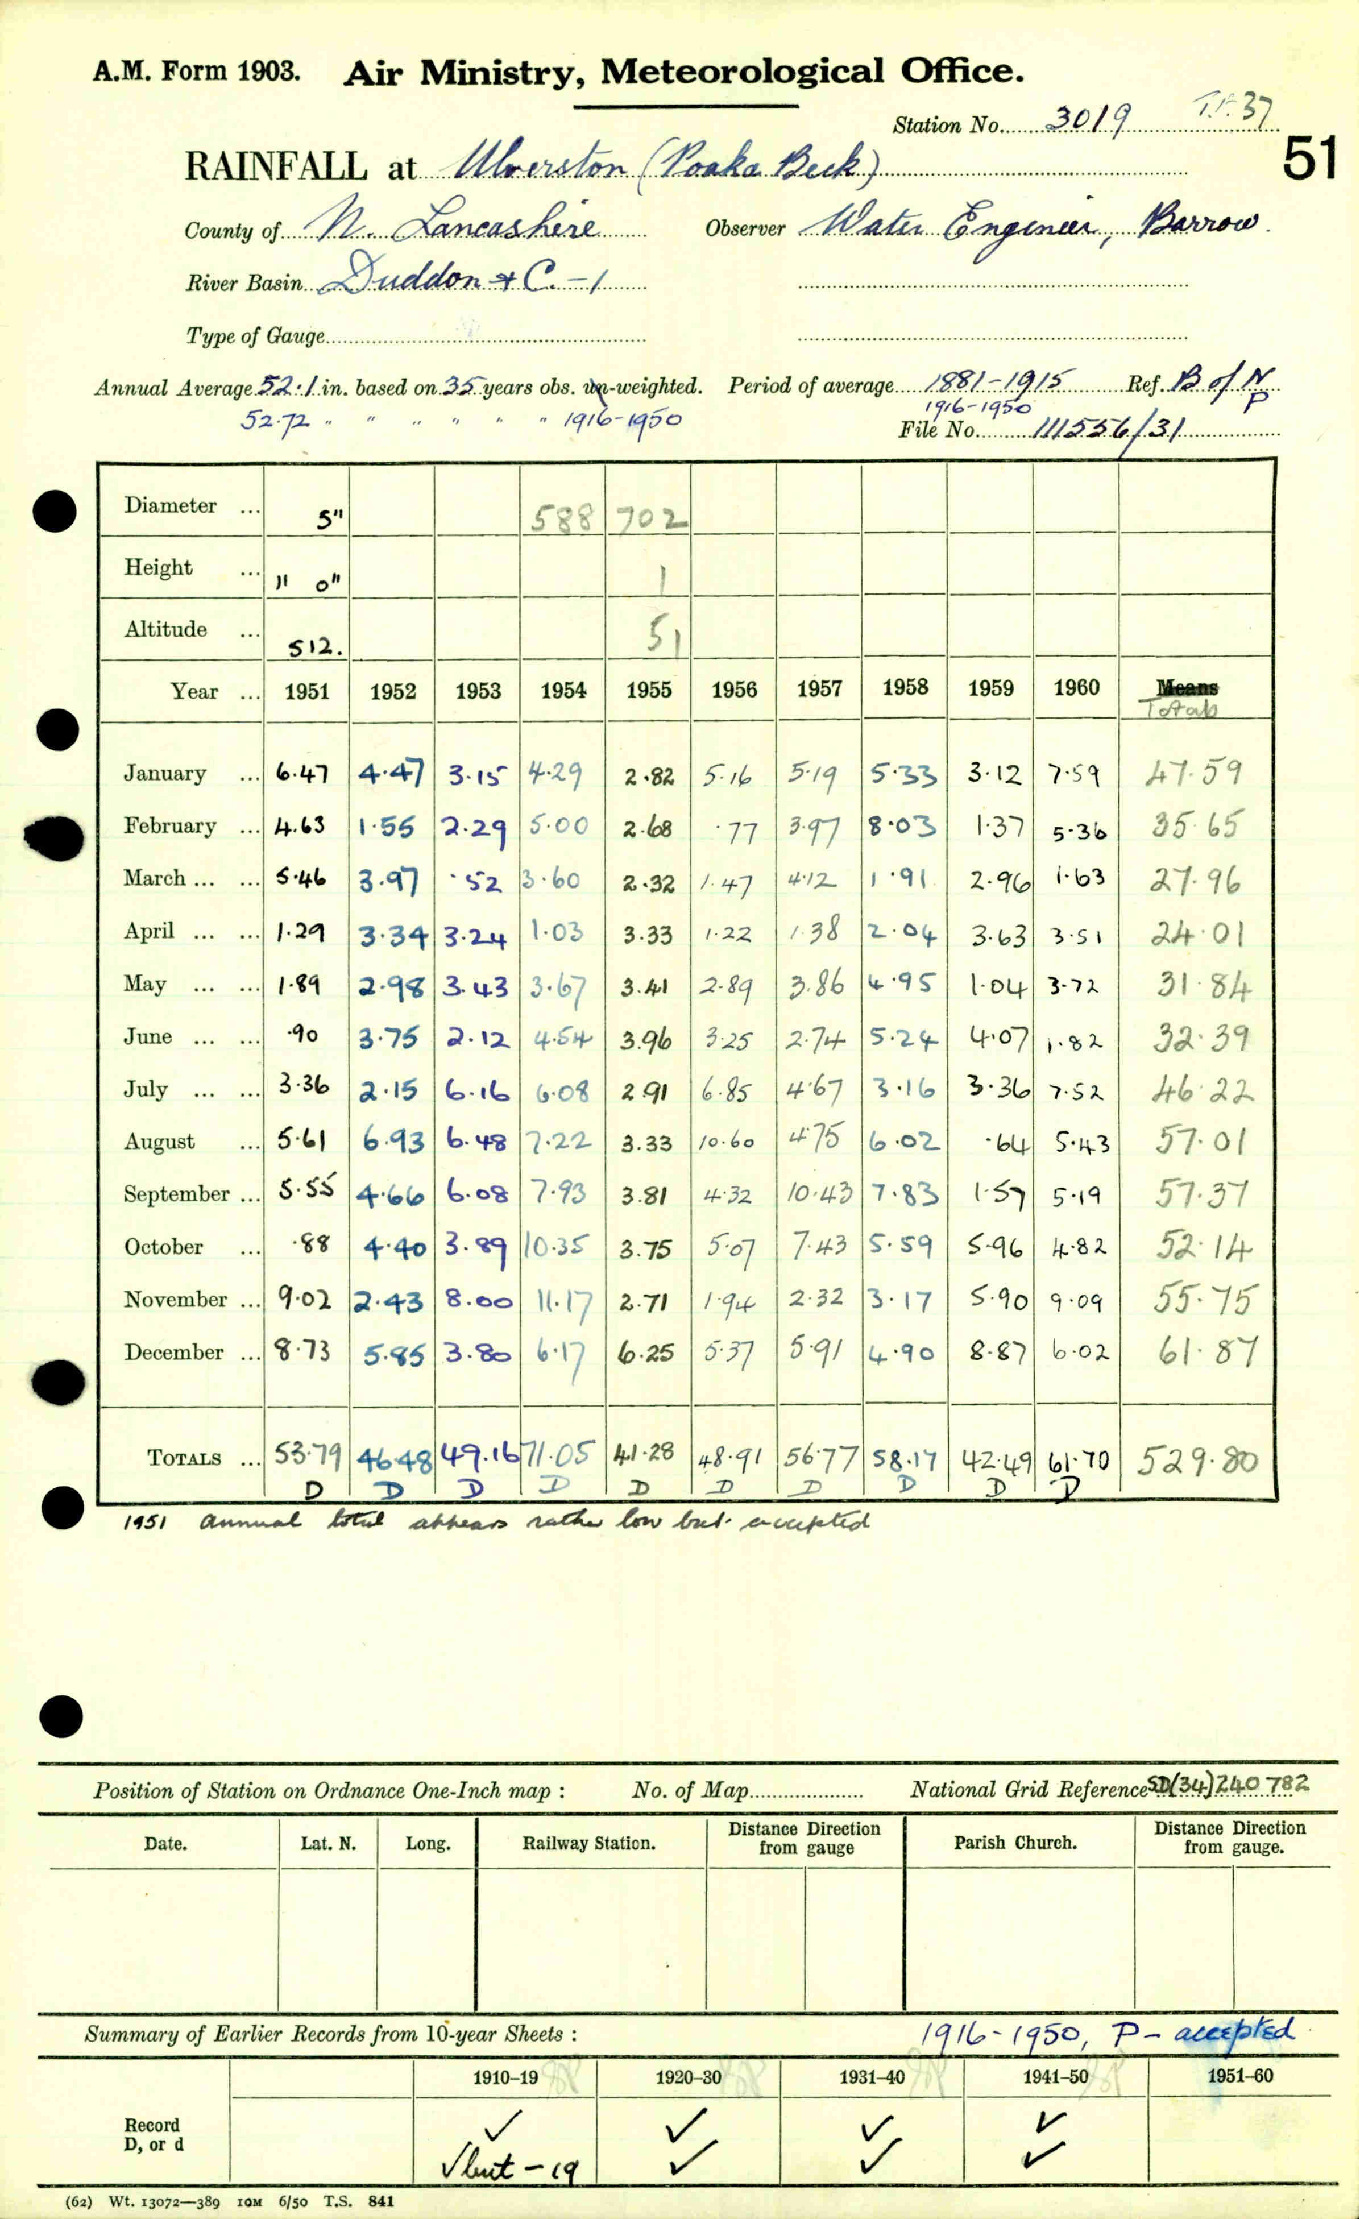 A.M. Form 1903. Air Ministry, Meteorological Office.
Station No. 3019
51
RAINFALL at Ulverston (Poaka Beck)
County of N. Lancashire Observer Water Engineer, Barrow
River Basin Duddon & C. - 1
Type of Gauge
Annual Average 52.1 in. based on 35 years obs. un-weighted. Period of average 1881-1915 Ref. B of N P
52.72 " " " " " " 1916-1950 1916-1950
File No. 111556/31
Diameter ... 5" 588 702
Height ... 11 0" 1
Altitude ... 512. 51
Year ... 1951 1952 1953 1954 1955 1956 1957 1958 1959 1960 Means Totals
January ... 6.47 4.47 3.15 4.29 2.82 5.16 5.19 5.33 3.12 7.59 47.59
February ... 4.63 1.55 2.29 5.00 2.68 .77 3.97 8.03 1.37 5.36 35.65
March ... ... 5.46 3.97 .52 3.60 2.32 1.47 4.12 1.91 2.96 1.63 27.96
April ... ... 1.29 3.34 3.24 1.03 3.33 1.22 1.38 2.04 3.63 3.51 24.01
May ... ... 1.89 2.98 3.43 3.67 3.41 2.89 3.86 4.95 1.04 3.72 31.84
June ... ... .90 3.75 2.12 4.54 3.96 3.25 2.74 5.24 4.07 1.82 32.39
July ... ... 3.36 2.15 6.16 6.08 2.91 6.85 4.67 3.16 3.36 7.52 46.22
August ... 5.61 6.93 6.48 7.22 3.33 10.60 4.75 6.02 .64 5.43 57.01
September ... 5.55 4.66 6.08 7.93 3.81 4.32 10.43 7.83 1.57 5.19 57.37
October ... .88 4.40 3.89 10.35 3.75 5.07 7.43 5.59 5.96 4.82 52.14
November ... 9.02 2.43 8.00 11.17 2.71 1.94 2.32 3.17 5.90 9.09 55.75
December ... 8.73 5.85 3.80 6.17 6.25 5.37 5.91 4.90 8.87 6.02 61.87
TOTALS ... 53.79 46.48 49.16 71.05 41.28 48.91 56.77 58.17 42.49 61.70 529.80
D D D D D D D D D D
1951 annual total appears rather low but accepted
Position of Station on Ordnance One-Inch map : No. of Map National Grid Reference SD(34)240782
Date. Lat. N. Long. Railway Station. Distance from Direction gauge Parish Church. Distance from Direction gauge.
Summary of Earlier Records from 10-year Sheets : 1916-1950, P - accepted
1910–19 1920–30 1931–40 1941–50 1951–60
Record ✓ ✓ ✓ ✓
D, or d ✓ but - 19 ✓ ✓ ✓
(62) Wt. 13072—389 10M 6/50 T.S. 841